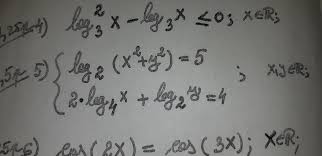 ,25п. 4) log₃²x - log₃x ≤ 0; x∈ℝ;
,5п. 5) { log₂(x²+y²) = 5
2·log₄x + log₂y = 4 ; x,y∈ℝ;
25п. 6) cos(2x) = cos(3x); x∈ℝ;